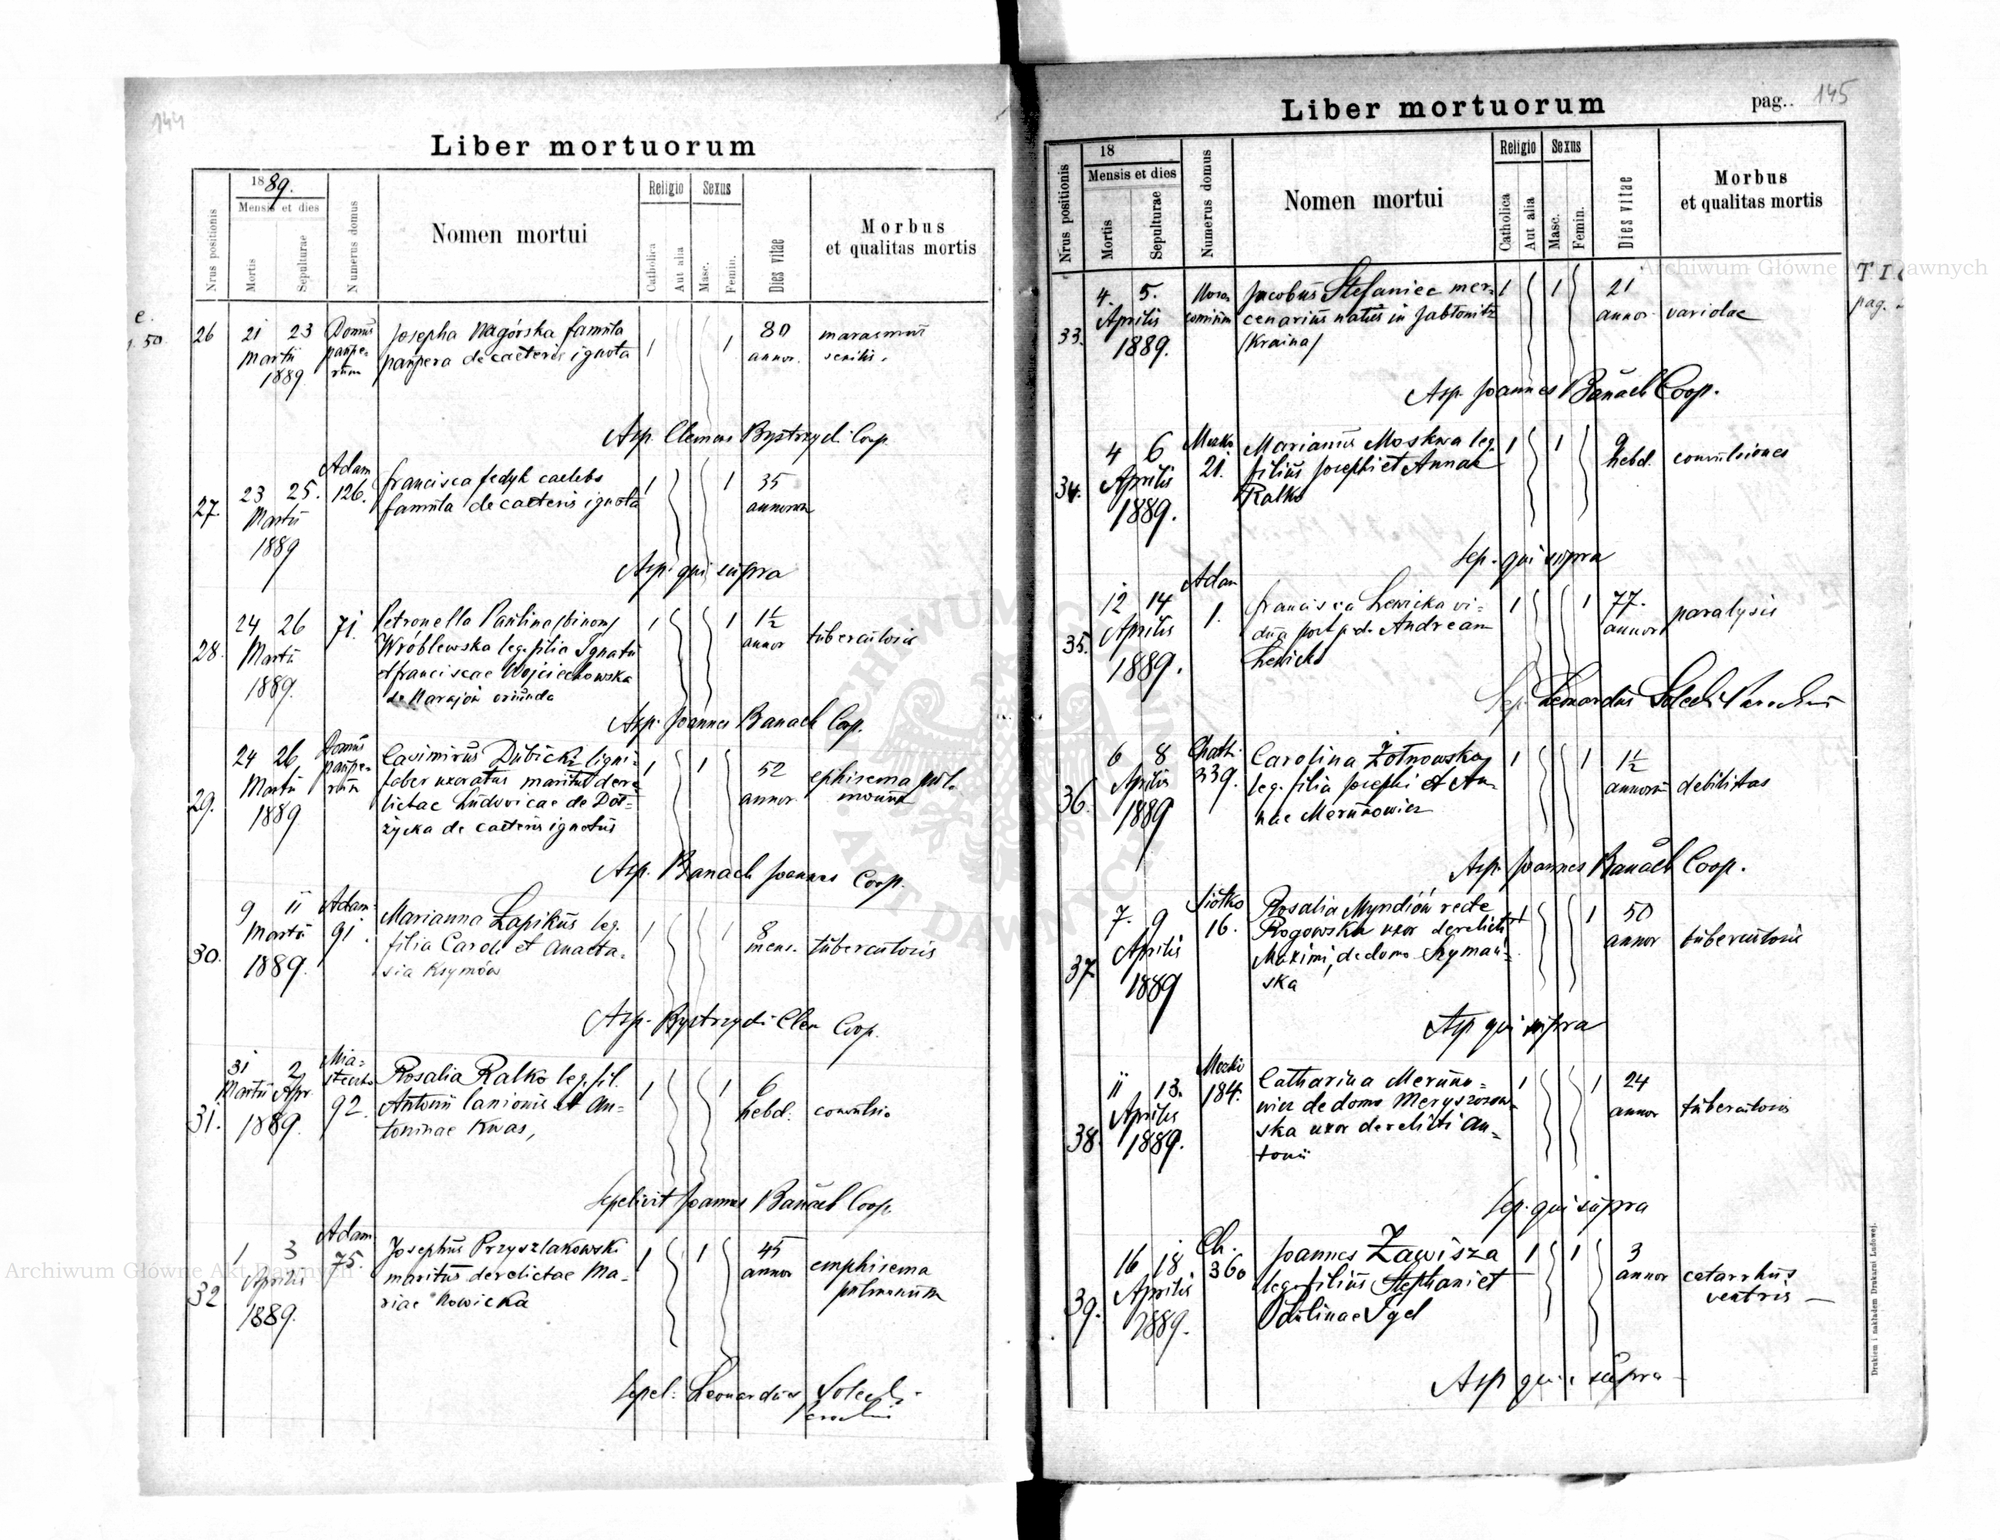 144
Liber mortuorum
Nrus positionis
1889.
Mensis et dies
Mortis
Sepulturae
Numerus domus
Nomen mortui
Religio
Catholica
Aut alia
Sexus
Masc.
Femin.
Dies vitae
Morbus
et qualitas mortis
26
21 23
Martii
1889
Domus
paupe-
rum
Josepha Nagórska famula
paupera de caeteris ignota
1
1
80
annor.
marasmus
senilis.
Asp. Clemens Bystrzycki Coop.
27.
23 25.
Martii
1889
Adam
126.
Francisca Fedyk caelebs
famula de caeteris ignota
1
1
35
annorum
Asp. qui supra
28.
24 26
Martii
1889.
71.
Petronella Paulina /binom/
Wróblewska leg. filia Ignatii
et Franciscae Wojciechowska
de Narajów oriunda
1
1
1½
annor
tuberculosis
Asp. Joannes Banach Coop.
29.
24 26
Martii
1889
Domus
paupe-
rum
Casimirus Dubicki ligni-
faber uxoratus maritus dere
lictae Ludovicae de Dół-
życka de caeteris ignotus
1
1
52
annor
ephisema pul-
monum
Asp. Banach Joannes Coop.
30.
9 11
Martii
1889.
Adam
91.
Marianna Łapikus leg.
filia Caroli et Anasta-
sia Ksymów
1
1
8
mens.
tuberculosis
Asp. Bystrzycki Clem Coop.
31.
31 2
Martii Apr.
1889.
Mia-
steczko
92.
Rosalia Ralko leg. fil.
Antonii lanionis et An-
toninae Kwas,
1
1
6
hebd.
convulsio
Sepelivit Joannes Banach Coop.
32
1 3
Aprilis
1889.
Adam
75.
Josephus Przyszlakowski
maritus derelictae Ma-
riae Nowicka
1
1
45
annor
emphisema
pulmonum
Sepel: Leonardus Solecki
Liber mortuorum
pag.. 145
Nrus positionis
18
Mensis et dies
Mortis
Sepulturae
Numerus domus
Nomen mortui
Religio
Catholica
Aut alia
Sexus
Masc.
Femin.
Dies vitae
Morbus
et qualitas mortis
33.
4. 5.
Aprilis
1889.
Jacobus Stefaniec mer-
cenarius natus in Jabłonitz
/Kraina/
1
1
21
annor
variolae
Asp. Joannes Banach Coop.
34.
4 6
Aprilis
1889.
21.
Marianus Moskwa leg.
filius Josephi et Annae
Ralko
1
1
9
hebd.
convulsiones
Sep. qui supra
35.
12 14
Aprilis
1889.
Adam
1.
Francisca Lewicka vi-
dua post p.d. Andream
Lewicki
1
1
77.
annor
paralysis
Sep. Leonardus Solecki Parochus
36.
6 8
Aprilis
1889
339.
Carolina Żółnowska
leg. filia Josephi et An-
nae Merunowicz
1
1
1½
annorum
debilitas
Asp. Joannes Banach Coop.
37.
7. 9
Aprilis
1889
Siółko
16.
Rosalia Myndiów recte
Rogowska uxor derelicti
Maximi, de domo Szymań-
ska
1
1
50
annor
tuberculosis
Asp qui supra
38.
11 13.
Aprilis
1889.
184.
Catharina Meruno-
wicz de domo Meryszczow-
ska uxor derelicti An-
tonii
1
1
24
annor
tuberculosis
Sep. qui supra
39.
16 18
Aprilis
1889.
Ch.
360
Joannes Zawisza
leg. filius Stephani et
Paulinae Igel
1
1
3
annor
catarrhus
ventris
Asp qui supra
Drukiem i nakładem Drukarni Ludowej.
Archiwum Główne Akt Dawnych
Archiwum Główne Akt Dawnych